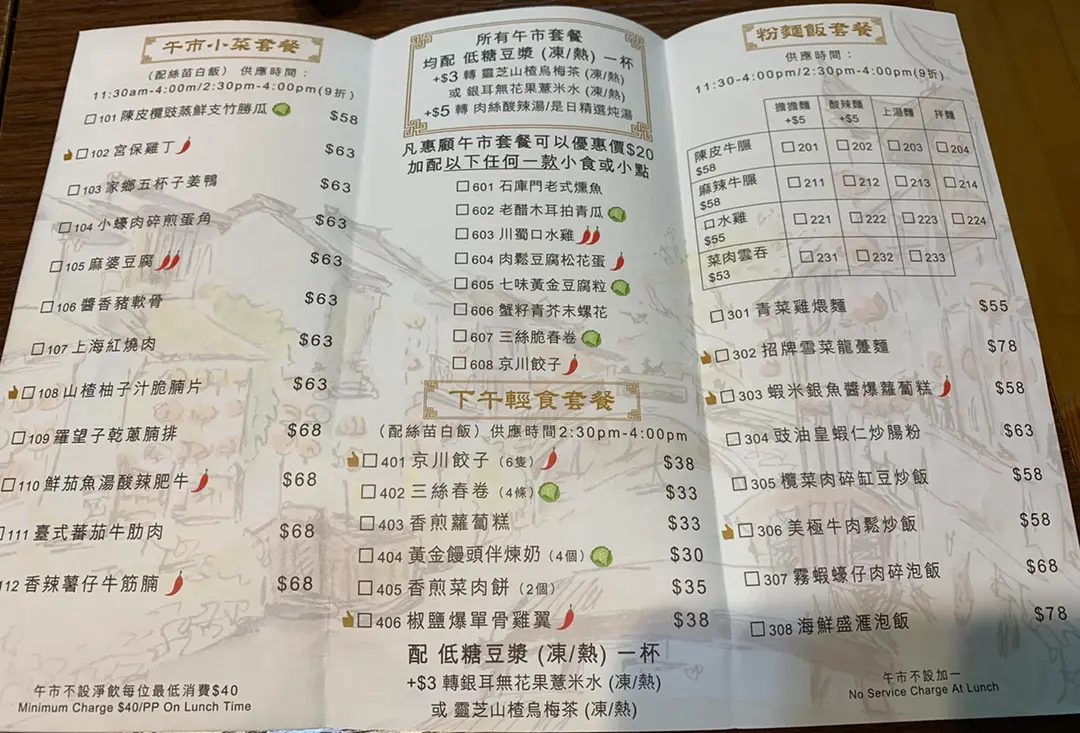 午市小菜套餐
(配絲苗白飯) 供應時間：
11:30am-4:00m/2:30pm-4:00pm(9折)
101 陳皮欖豉蒸鮮支竹勝瓜 $58
102 宮保雞丁 $63
103 家鄉五杯子姜鴨 $63
104 小蠔肉碎煎蛋角 $63
105 麻婆豆腐 $63
106 醬香豬軟骨 $63
107 上海紅燒肉 $63
108 山楂柚子汁脆腩片 $63
109 羅望子乾蔥腩排 $68
110 鮮茄魚湯酸辣肥牛 $68
111 臺式蕃茄牛肋肉 $68
112 香辣薯仔牛筋腩 $68
午市不設淨飲每位最低消費$40
Minimum Charge $40/PP On Lunch Time
所有午市套餐
均配 低糖豆漿 (凍/熱) 一杯
+$3 轉 靈芝山楂烏梅茶 (凍/熱)
或 銀耳無花果薏米水 (凍/熱)
+$5 轉 肉絲酸辣湯/是日精選炖湯
凡惠顧午市套餐可以優惠價$20
加配以下任何一款小食或小點
601 石庫門老式燻魚
602 老醋木耳拍青瓜
603 川蜀口水雞
604 肉鬆豆腐松花蛋
605 七味黃金豆腐粒
606 蟹籽青芥末螺花
607 三絲脆春卷
608 京川餃子
下午輕食套餐
(配絲苗白飯) 供應時間2:30pm-4:00pm
401 京川餃子 (6隻) $38
402 三絲春卷 (4條) $33
403 香煎蘿蔔糕 $33
404 黃金饅頭伴煉奶 (4個) $30
405 香煎菜肉餅 (2個) $35
406 椒鹽爆單骨雞翼 $38
配 低糖豆漿 (凍/熱) 一杯
+$3 轉銀耳無花果薏米水 (凍/熱)
或 靈芝山楂烏梅茶 (凍/熱)
粉麵飯套餐
供應時間：
11:30-4:00pm/2:30pm-4:00pm(9折)
擔擔麵 +$5 酸辣麵 +$5 上湯麵 拌麵
陳皮牛腒 $58 201 202 203 204
麻辣牛腒 $58 211 212 213 214
口水雞 $55 221 222 223 224
菜肉雲吞 $53 231 232 233
301 青菜雞煨麵 $55
302 招牌雪菜龍躉麵 $78
303 蝦米銀魚醬爆蘿蔔糕 $58
304 豉油皇蝦仁炒腸粉 $63
305 欖菜肉碎缸豆炒飯 $58
306 美極牛肉鬆炒飯 $58
307 霧蝦蠔仔肉碎泡飯 $68
308 海鮮盛滙泡飯 $78
午市不設加一
No Service Charge At Lunch